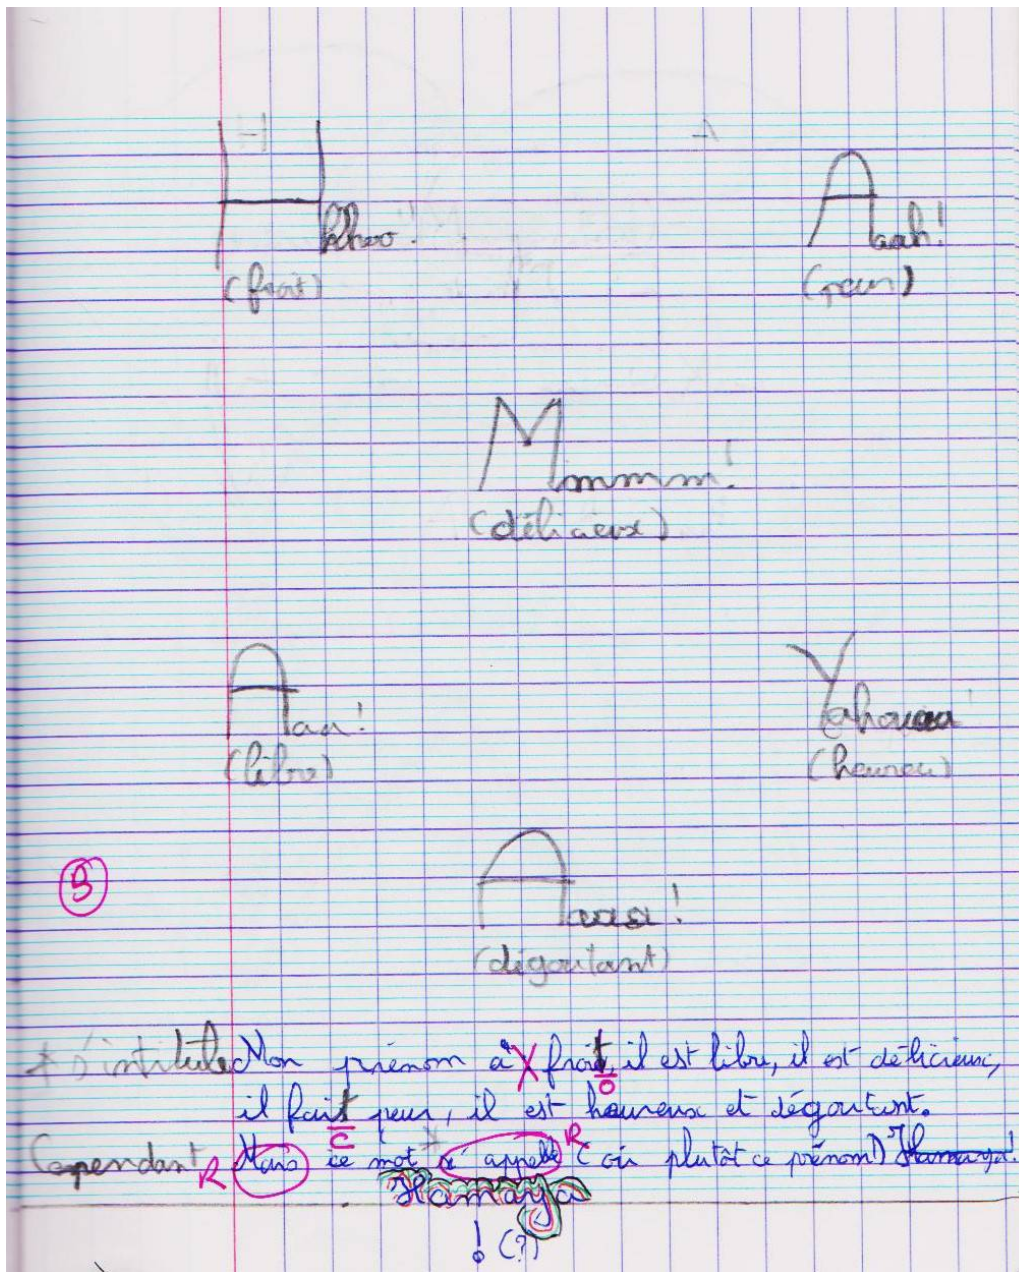 H A
Hhhoo! Aaah!
(froit) (peur)
Mmmmm!
(délicieux)
Aaa! Yahouuu!
(libre) (heureu)
B
Aaaa!
(dégoutant)
* s'intitule Mon prénom a X froit, il est libre, il est délicieux,
il fait peur, il est heureux et dégoutant.
Cependant R Mais ce mot * s'appelle R (où plutôt ce prénom) Hamaya!
Hamaya
! (?)